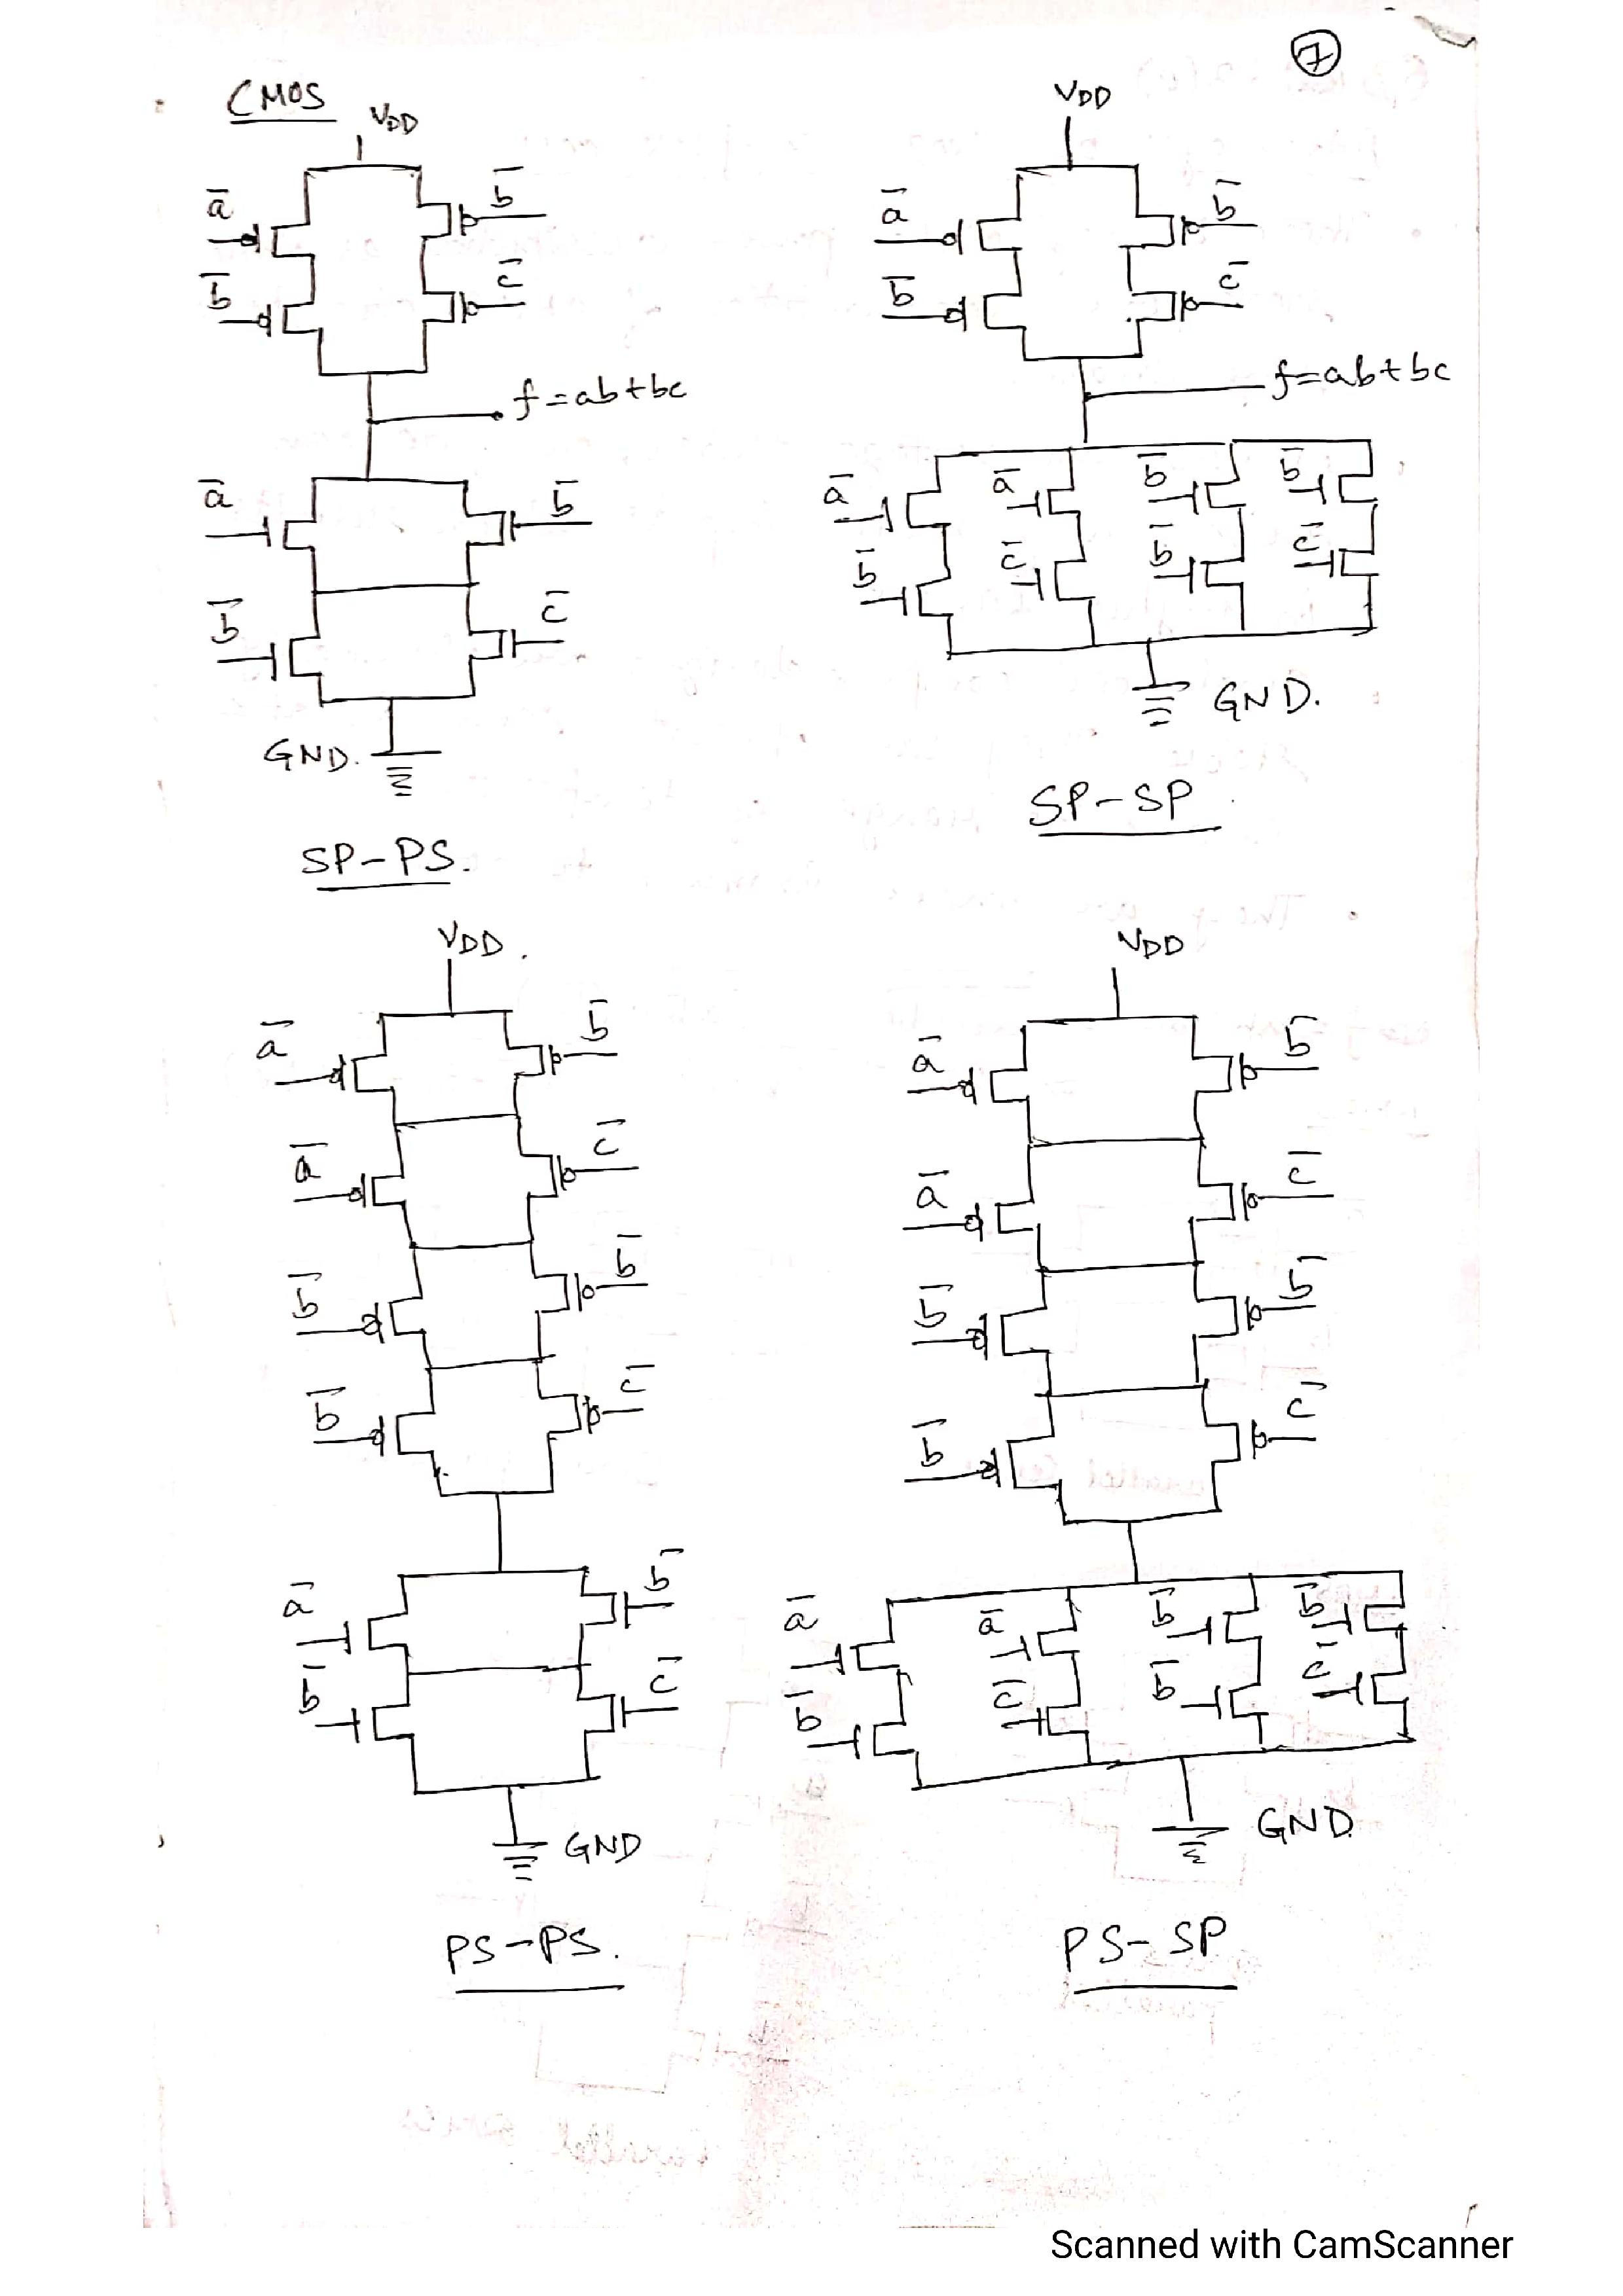 7
CMOS
VDD
a̅
b̅
b̅
c̅
f=ab+bc
a̅
b̅
b̅
c̅
GND.
SP-PS.
VDD
a̅
b̅
b̅
c̅
f=ab+bc
a̅
a̅
b̅
b̅
b̅
c̅
b̅
c̅
GND.
SP-SP
VDD.
a̅
b̅
a̅
c̅
b̅
b̅
b̅
c̅
a̅
b̅
b̅
c̅
GND
PS-PS.
VDD
a̅
b̅
a̅
c̅
b̅
b̅
b̅
c̅
a̅
a̅
b̅
b̅
b̅
c̅
b̅
c̅
GND.
PS-SP
Scanned with CamScanner